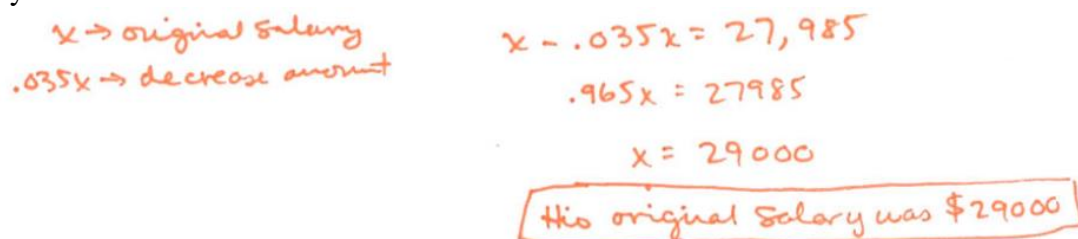 x → original salary
.035x → decrease amount
x - .035x = 27,985
.965x = 27985
x = 29000
His original salary was $29000